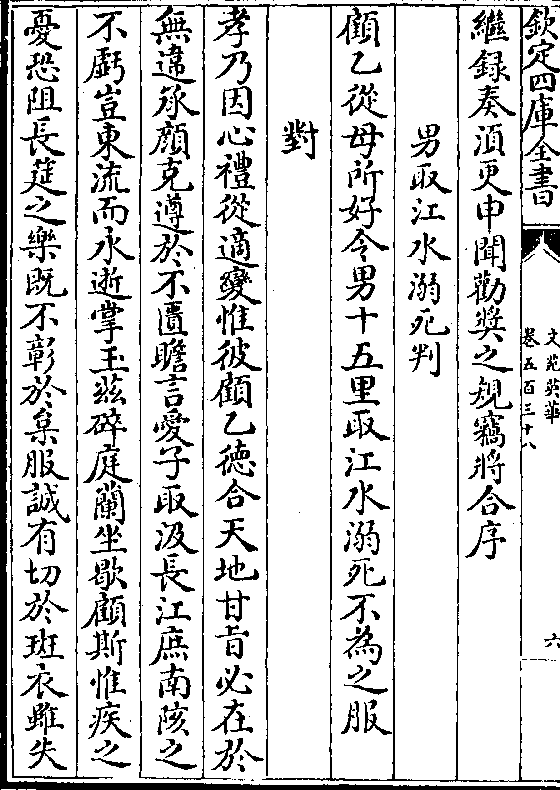 欽定四庫全書
文苑英華
卷五百三十八
六
繼録奏湏更申聞勸奬之規竊將合序
男取江水溺死判
顧乙從母所好令男十五里取江水溺死不為之服
對
孝乃因心禮從適變惟彼顧乙徳合天地甘㫖必在於
無違承顔克遵於不匱瞻言愛子取汲長江庶南陔之
不虧豈東流而永逝掌玉兹碎庭蘭坐歇顧斯惟疾之
憂恐阻長筵之樂既不彰於枲服誠有切於斑衣雖失